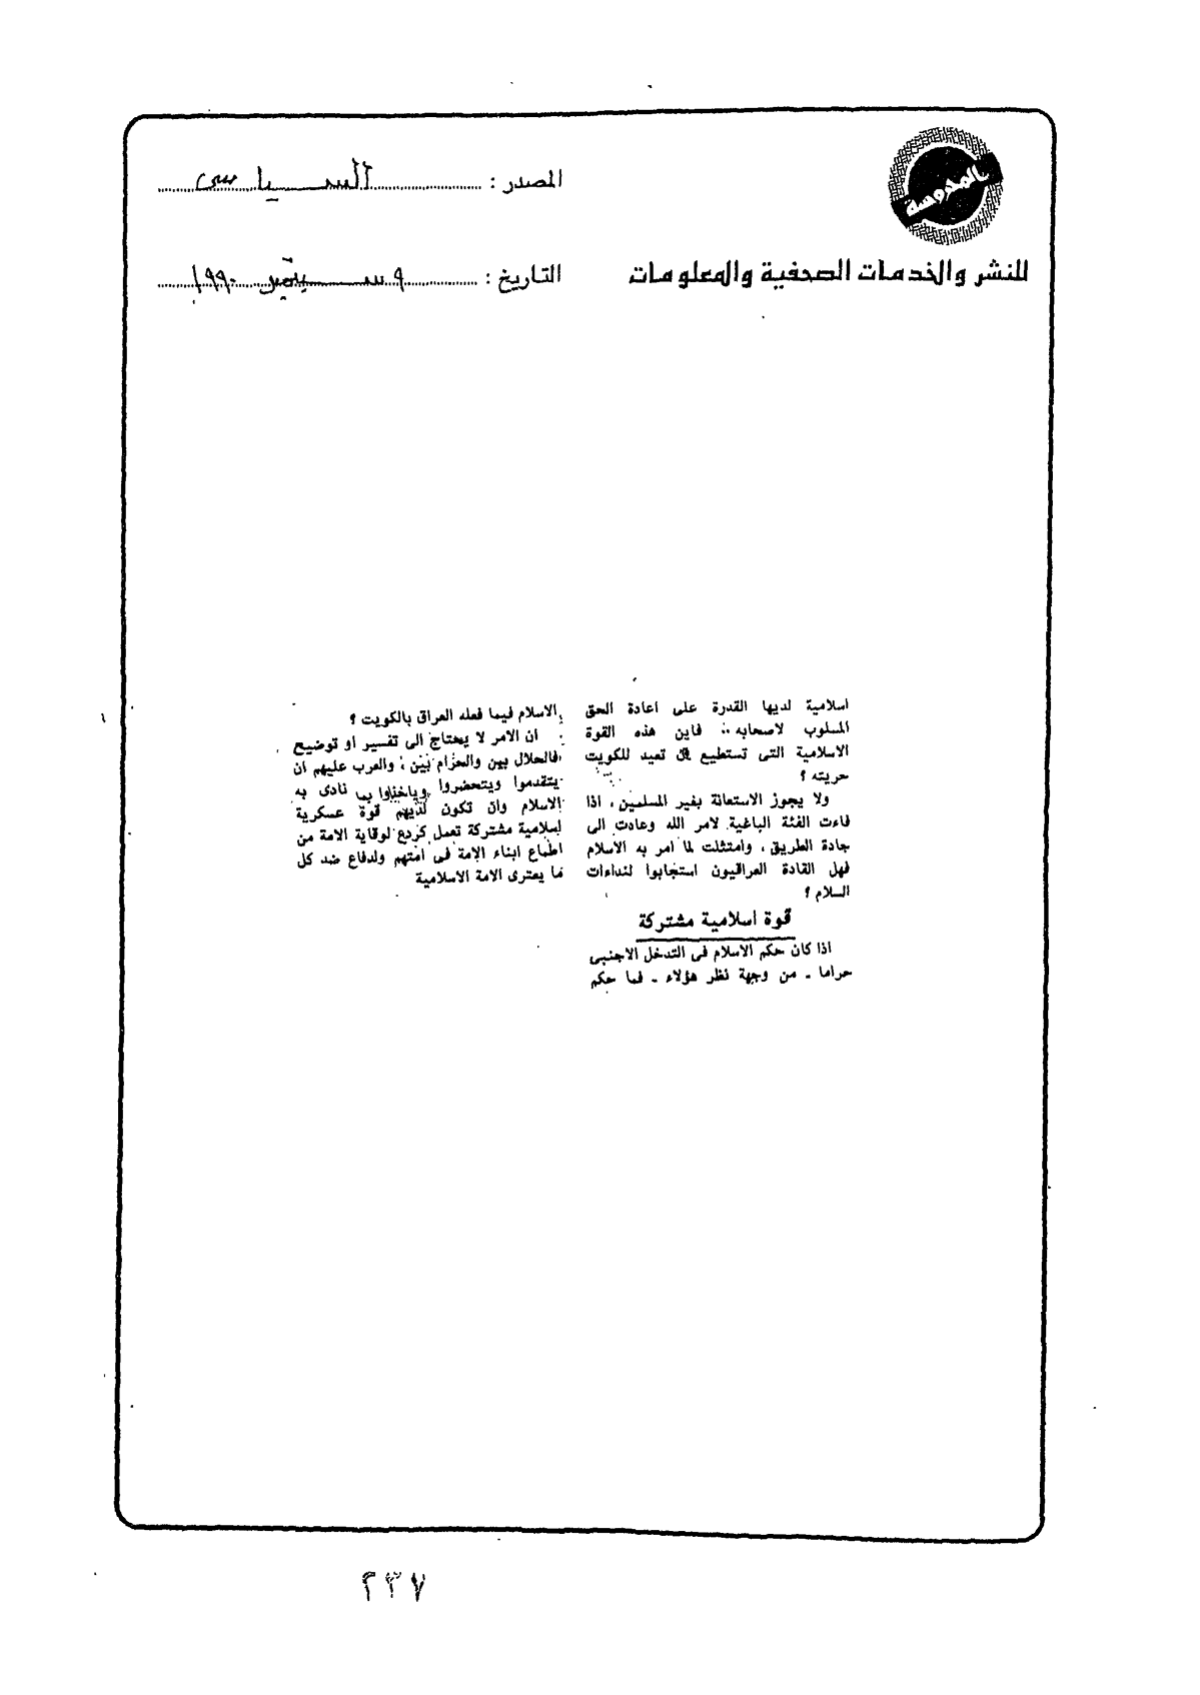 المصدر : السياسى
التاريخ : ٩ سبتمبر ١٩٩٠
للنشر والخدمات الصحفية والمعلومات
اسلامية لديها القدرة على اعادة الحق
المسلوب لاصحابه .. فاين هذه القوة
الاسلامية التى تستطيع ان تعيد للكويت
حريته ؟
ولا يجوز الاستعانة بغير المسلمين ، اذا
فاءت الفئة الباغية لامر الله وعادت الى
جادة الطريق ، وامتثلت لما امر به الاسلام
فهل القادة العراقيون استجابوا لنداءات
السلام ؟
قوة اسلامية مشتركة
اذا كان حكم الاسلام فى التدخل الاجنبى
حراما ـ من وجهة نظر هؤلاء ـ فما حكم
الاسلام فيما فعله العراق بالكويت ؟
ان الامر لا يحتاج الى تفسير او توضيح
فالحلال بين والحرام بين ، والعرب عليهم ان
يتقدموا ويتحضروا وياخذوا بما نادى به
الاسلام وان تكون لديهم قوة عسكرية
اسلامية مشتركة تعمل كردع لوقاية الامة من
اطماع ابناء الامة فى امتهم ولدفاع ضد كل
ما يعترى الامة الاسلامية
٢٣٧